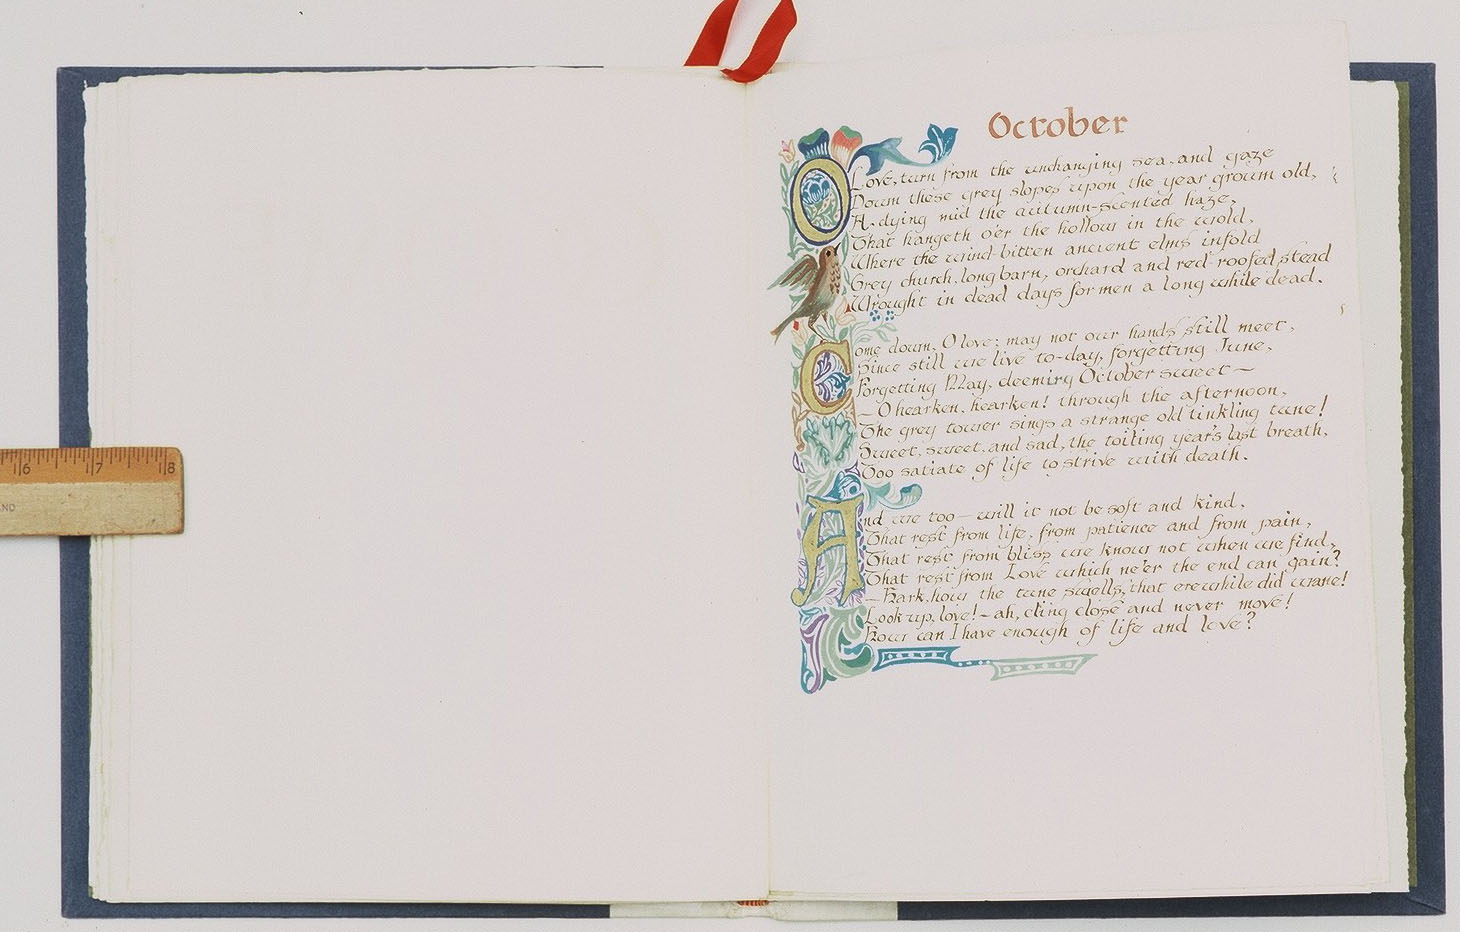 October
O Love, turn from the unchanging sea, and gaze
Down these grey slopes upon the year grown old,
A-dying mid the autumn-scented haze,
That hangeth o'er the hollow in the wold,
Where the wind-bitten ancient elms infold
Grey church, long barn, orchard and red-roofed stead
Wrought in dead days for men a long while dead.
Come down, O love; may not our hands still meet,
Since still we live to-day, forgetting June,
Forgetting May, deeming October sweet —
— O hearken, hearken! through the afternoon,
The grey tower sings a strange old tinkling tune!
Sweet, sweet, and sad, the toiling year's last breath,
Too satiate of life to strive with death.
And we too — will it not be soft and kind,
That rest from life, from patience and from pain,
That rest from bliss we know not when we find,
That rest from Love which ne'er the end can gain?
— Hark, how the tune swells, that erewhile did wane!
Look up, love! — ah, cling close and never move!
How can I have enough of life and love?
16 17 18